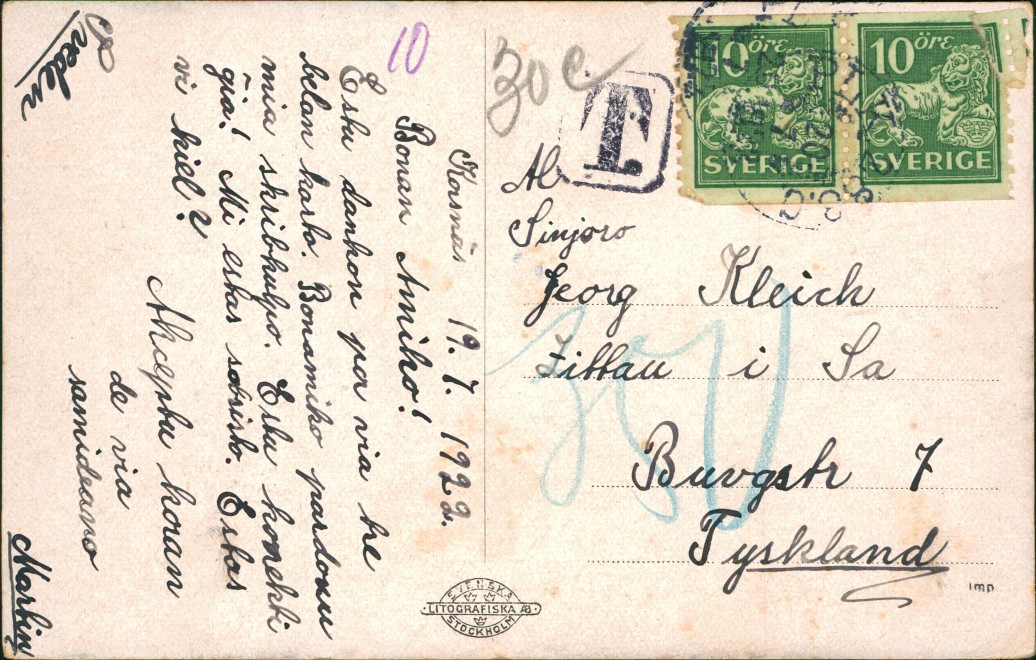 Korsnäs 19. 7. 1922.
Bonan Amiko!
Estu dankon por via tre
belan karto. Bonamiko pardonu
mia skribkulpo. Estu korekti
ĝin! Mi estas sobristo. Estas
vi kiel?
Akceptu koran
de via
samideano
Martin
veden
10
30 c
T
10 öre
SVERIGE
10 öre
SVERIGE
Al
Sinjoro
Georg Kleich
Zittau i Sa
Buvgstr 7
Tyskland
SVENSKA
LITOGRAFISKA AB
STOCKHOLM
imp